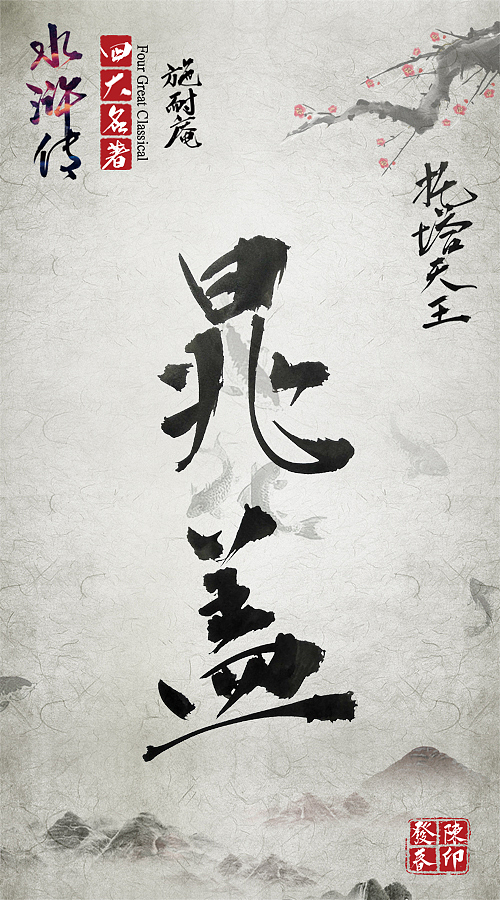 水浒传
四大名著
Four Great Classical
施耐庵
托塔天王
晁盖
陳印
發春